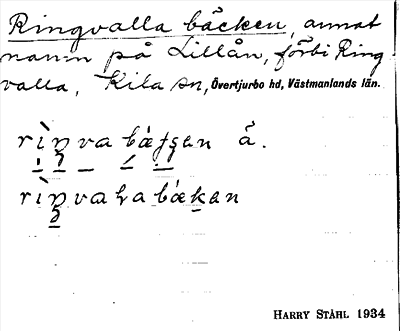 Ringvalla bäcken, annat
namn på Lillån, förbi Ring
valla, Kila sn, Övertjurbo hd, Västmanlands län.
rìŋva bǽtʃen å.
rìŋvala bǽken
HARRY STÅHL 1934